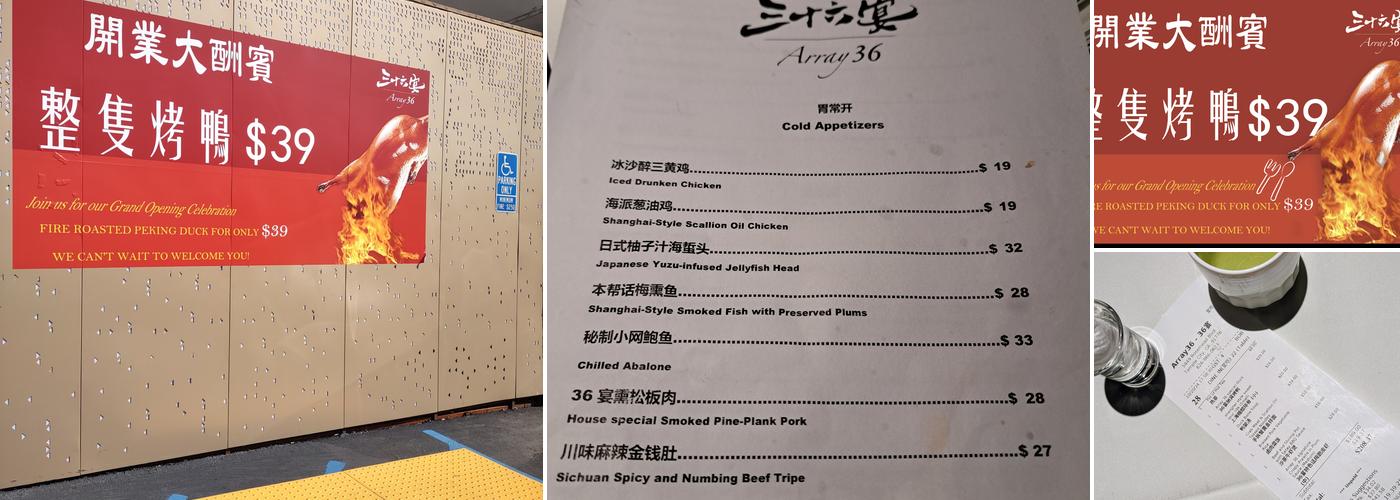 開業大酬賓
三十六宴
Array 36
整隻烤鴨 $39
Join us for our Grand Opening Celebration
FIRE ROASTED PEKING DUCK FOR ONLY $39
WE CAN'T WAIT TO WELCOME YOU!
PARKING
ONLY
MINIMUM
FINE $250
三十六宴
Array 36
胃常开
Cold Appetizers
冰沙醉三黄鸡 $ 19
Iced Drunken Chicken
海派葱油鸡 $ 19
Shanghai-Style Scallion Oil Chicken
日式柚子汁海蜇头 $ 32
Japanese Yuzu-infused Jellyfish Head
本帮话梅熏鱼 $ 28
Shanghai-Style Smoked Fish with Preserved Plums
秘制小网鲍鱼 $ 33
Chilled Abalone
36 宴熏松板肉 $ 28
House special Smoked Pine-Plank Pork
川味麻辣金钱肚 $ 27
Sichuan Spicy and Numbing Beef Tripe
開業大酬賓
三十六宴
Array 36
隻烤鴨 $39
us for our Grand Opening Celebration
ROASTED PEKING DUCK FOR ONLY $39
WE CAN'T WAIT TO WELCOME YOU!
Array36 - 36宴
28
$208.37